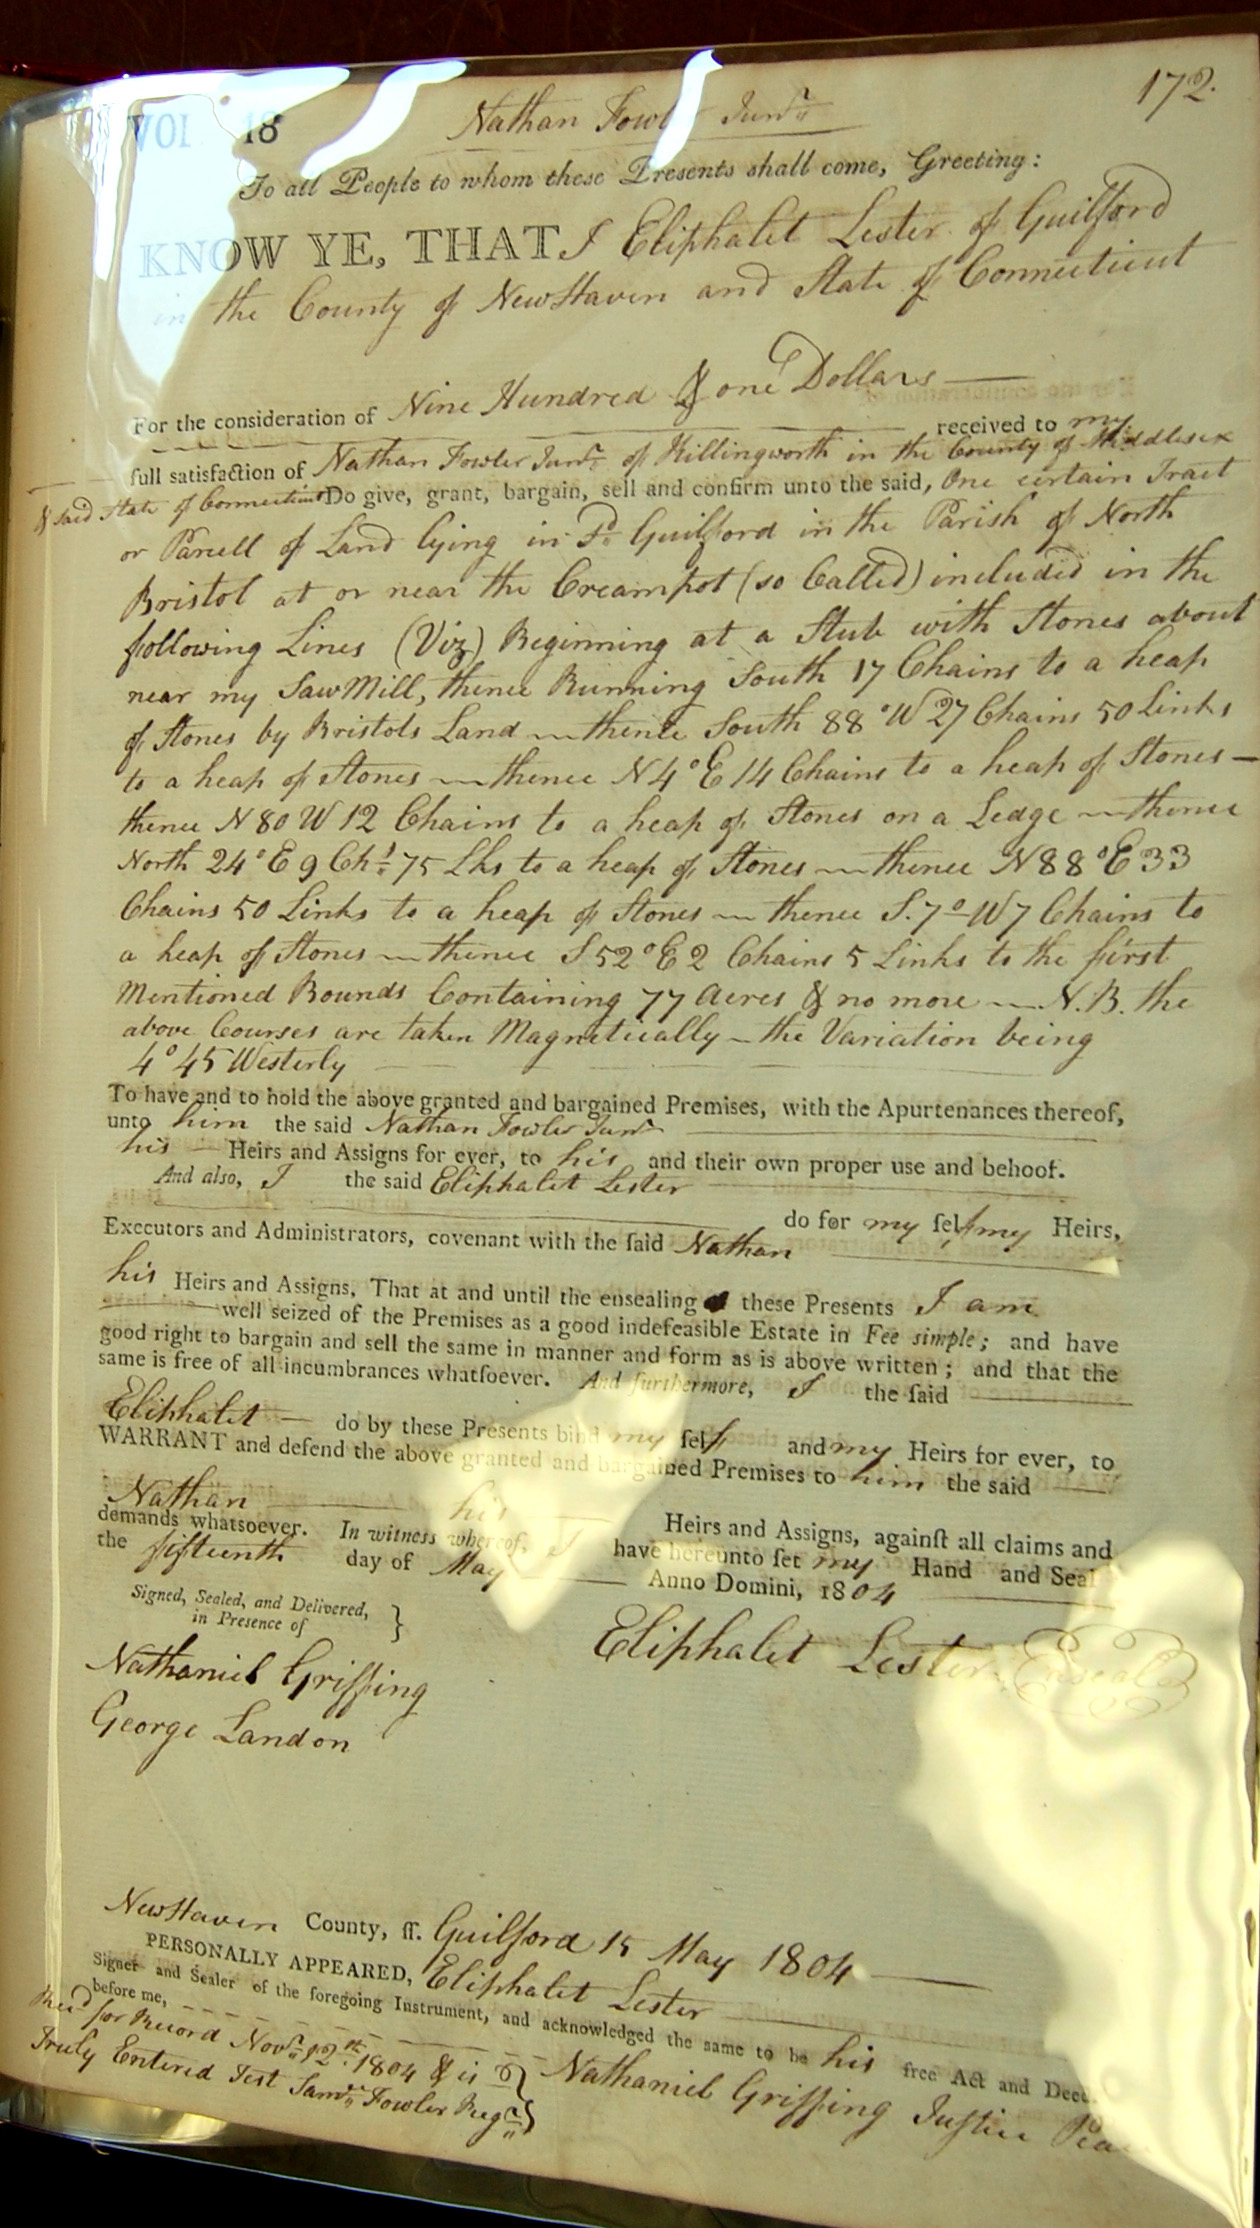 172.
VOL 18
Nathan Fowler Junr
To all People to whom these Presents shall come, Greeting:
KNOW YE, THAT I Eliphalet Lester of Guilford
in the County of NewHaven and State of Connecticut
For the consideration of Nine Hundred & one Dollars
received to my
full satisfaction of Nathan Fowler Junr of Killingworth in the County of Middlesex
& said State of Connecticut Do give, grant, bargain, sell and confirm unto the said, One certain Tract
or Parcell of Land lying in Sd Guilford in the Parish of North
Bristol at or near the Creampot (so Called) included in the
following Lines (Viz) Beginning at a Stub with Stones about
near my SawMill, thence Running South 17 Chains to a heap
of Stones by Bristols Land — thence South 88° W 27 Chains 50 Links
to a heap of Stones — thence N 4° E 14 Chains to a heap of Stones —
thence N 80 W 12 Chains to a heap of Stones on a Ledge — thence
North 24° E 9 Chs 75 Lks to a heap of Stones — thence N 88° E 33
Chains 50 Links to a heap of Stones — thence S. 7° W 7 Chains to
a heap of Stones — thence S 52° E 2 Chains 5 Links to the first
Mentioned Bounds Containing 77 Acres & no more — N.B. the
above Courses are taken Magnetically — the Variation being
4° 45 Westerly
To have and to hold the above granted and bargained Premises, with the Apurtenances thereof,
unto him the said Nathan Fowler Junr
his Heirs and Assigns for ever, to his and their own proper use and behoof.
And also, I the said Eliphalet Lester
do for my self & my Heirs,
Executors and Administrators, covenant with the said Nathan
his Heirs and Assigns, That at and until the ensealing of these Presents I am
well seized of the Premises as a good indefeasible Estate in Fee simple; and have
good right to bargain and sell the same in manner and form as is above written; and that the
same is free of all incumbrances whatsoever. And furthermore, I the said
Eliphalet do by these Presents bind my self and my Heirs for ever, to
WARRANT and defend the above granted and bargained Premises to him the said
Nathan his Heirs and Assigns, against all claims and
demands whatsoever. In witness whereof, I have hereunto set my Hand and Seal
the fifteenth day of May Anno Domini, 1804
Signed, Sealed, and Delivered,
in Presence of }
Eliphalet Lester Enseald
Nathaniel Griffing
George Landon
NewHaven County, ss. Guilford 15 May 1804
PERSONALLY APPEARED, Eliphalet Lester
Signer and Sealer of the foregoing Instrument, and acknowledged the same to be his free Act and Deed,
before me, Nathaniel Griffing Justice Peace
Recd for Record Novr 12th 1804 & is
Truly Entered Test Saml Fowler Regr